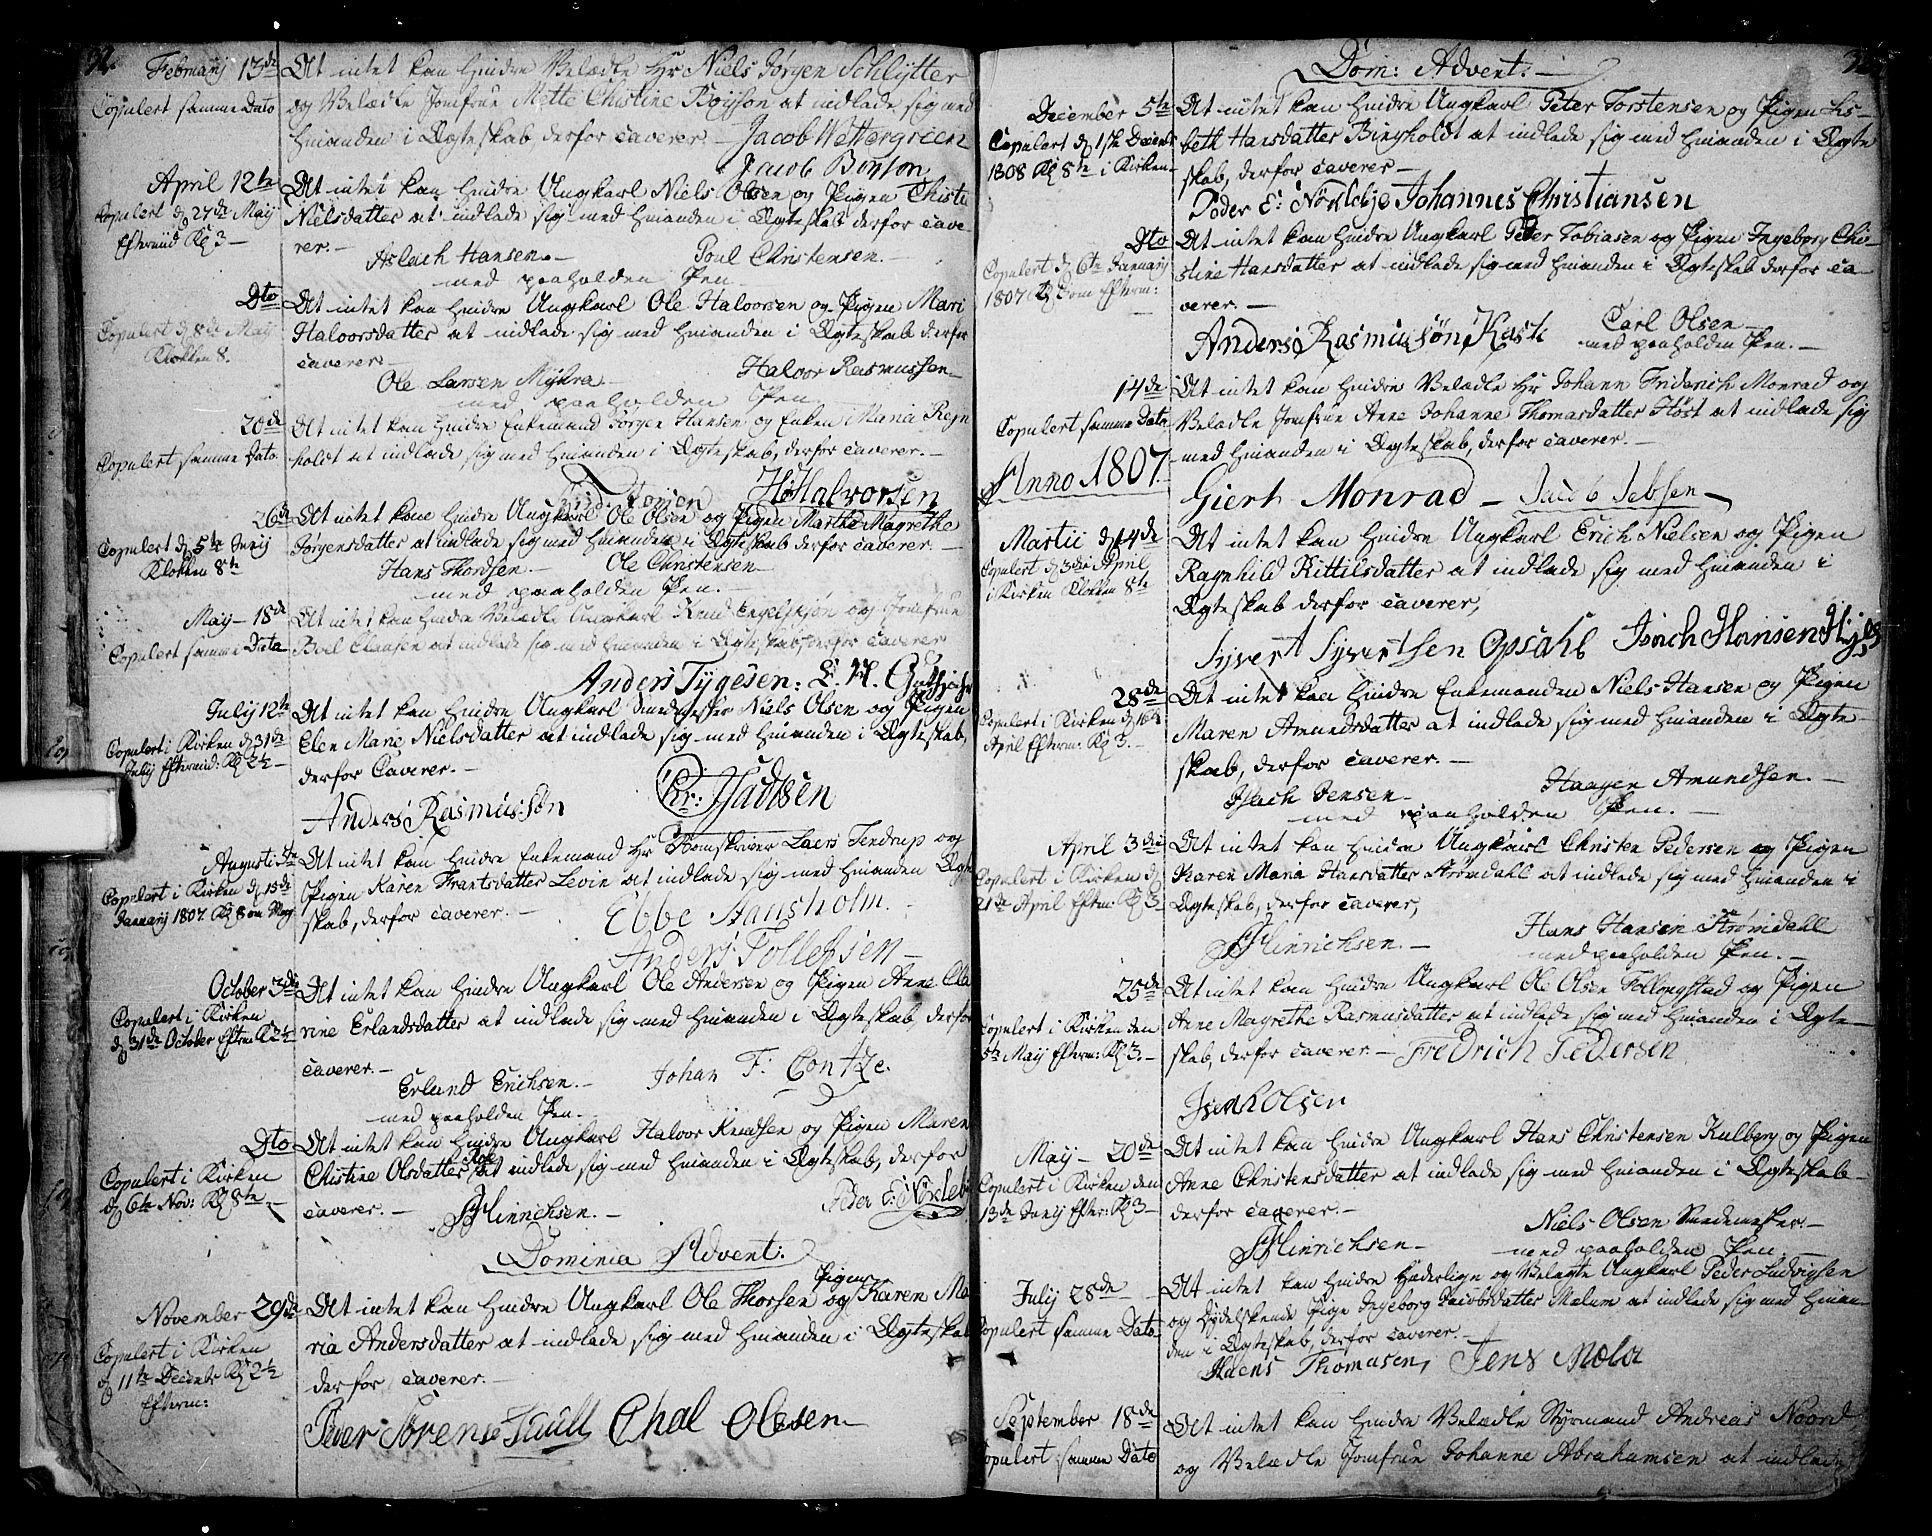 32.
Februarij 13de At intet kan hindre Velædle Hr Niels Jørgen Schlytter
Copulert samme Dato og Velædle Jomfrue Mette Christine Boyson at indlade sig med
hinanden i Ægteskab derfor caverer. Jacob Wettergreen
Jacob Bonton
April 12te At intet kan hindre Ungkarl Niels Olsen og Pigen Christe
Copulert d 27de May Nielsdatter at indlade sig med hinanden i Ægteskab derfor cave-
Eftermid Kl 3 — rer. —
Aslach Hansen. — Poul Christensen. —
med paaholden Pen
Dto At intet kan hindre Ungkarl Ole Haloorsen og Pigen Mari
Copulert d 8de May Haloorsdatter at indlade sig med hinanden i Ægteskab derfor
Klokken 8. caverer
Ole Larsen Myhra — Haloor Rasmussen —
med paaholden Pen
20de At intet kan hindre Enkemand Jørgen Hansen og Enken Maria Regn
Copulert samme Dato. holdt at indlade sig med hinanden i Ægteskab, derfor caverer. —
H Halvorsen
26de At intet kan hindre Ungkarl Ole Olsen og Pigen Marthe Magrethe
Copulert d 5te Junij Jørgensdatter at indlade sig med hinanden i Ægteskab derfor caverer. —
Klokken 8te Hans Thordsen — Ole Christensen —
med paaholden Pen.
May — 18de At intet kan hindre Velædle Ungkarl Knud Engelskjøn og Jomfrue
Copulert samme Data Boel Claasen at indlade sig med hinanden i Ægteskab, derfor caverer
Anders Tygesen:
July 12te At intet kan hindre Ungkarl Smedmester Niels Olsen og Pigen
Copulert i Kirken d 31te Elen Marie Nielsdatter at indlade sig med hinanden i Ægteskab,
July Eftermid: Kl 2½ — derfor Caverer. —
Anders Rasmussøn
Augusti 5te At intet kan hindre Enkemand Hr Laers Tendrup og
Copulert i Kirken d 15de Pigen Karen Frantsdatter Levin at indlade sig med hinanden Ægte
Januarij 1807 Kl 8 skab, derfor caverer. —
Ebbe Hansholm.
Anders Tollefsen —
October 3die At intet kan hindre Ungkarl Ole Andersen og Pigen Anne Cla
Copulert i Kirken rine Erlandsdatter at indlade sig med hinanden i Ægteskab, derfor
d 31de October Efterm Kl 2½ caverer. —
Erland Erichsen. — Johan F: Contze.
med paaholden Pen. —
Dto At intet kan hindre Ungkarl Haloor Knudsen og Pigen Maren
Copulert i Kirken Christine Olsdatter at indlade sig med hinanden i Ægteskab, derfor
d 6te Nov: Kl 8te — caverer. — Hinrichsen. — Peder E: Nörleb
Dominica Advent:
Pigen
November 29de At intet kan hindre Ungkarl Ole Thorsen og Karen Ma
Copulert i Kirken ria Andersdatter at indlade sig med hinanden i Ægteskab
d 11te Decembr Kl 2½ derfor caverer. —
Efterm:
Peder Sørense Olesen —
Dom: Advent: —
December 5te At intet kan hindre Ungkarl Peter Torstensen og Pigen Lis-
Copulert d 1ste Decembr beth Hansdatter Bingholdt at indlade sig med hinanden i Ægte
1808 Kl 8te i Kirken — skab, derfor caverer —
Peder E: Johannes Christiansen
Dto At intet kan hindre Ungkarl Peter Tobiasen og Pigen Ingeborg Chri-
Copulert d 6te Januarij stine Hansdatter at indlade sig med hinanden i Ægteskab derfor ca-
1807 Efterm: verer. —
Anders Rasmussøn Kaste Carl Olsen —
med paaholden Pen. —
14de At intet kan hindre Velædle Hr Johann Friderich Monrad og
Copulert samme Dato Velædle Jomfrue Anne Johanne Thomasdatter Høst at indlade sig
med hinanden i Ægteskab, derfor caverer. —
Anno 1807.
Giert Monrad — Jacob Jebsen —
Martii d 14de At intet kan hindre Ungkarl Erich Nielsen og Pigen
Copulert d 3die April Ragnhild Kittilsdatter at indlade sig med hinanden i
i Kirken Klokken 8te Ægteskab derfor caverer,
Syvert Syvertsen Opsahl
28de At intet kan hindre Enkemanden Niels Hansen og Pigen
Copulert i Kirken d 10de Maren Amundsdatter at indlade sig med hinanden i Ægte-
April Efterm: Kl 3. — skab, derfor caverer. —
Aslach Jensen — Haagen Amundsen. —
med paaholden Pen. —
April 3die At intet kan hindre Ungkarl Christen Pedersen og Pigen
Copulert i Kirken d Karen Maria Hansdatter Strømdahl at indlade sig med hinanden i
21de April Efterm: Kl 3 Ægteskab, derfor caverer,
Hinrichsen. — Hans Hansen Strømdahl
med paaholden Pen. —
25de At intet kan hindre Ungkarl Ole Olsen Follongstad og Pigen
Copulert i Kirken den Anne Magrethe Rasmusdatter at indlade sig med hinanden i Ægte-
5te May Efterm: Kl 3. — skab, derfor caverer — Fredrich Pedersen
May — 20de At intet kan hindre Ungkarl Hans Christensen Kulberg og Pigen
Copulert i Kirken den Anne Christensdatter at indlade sig med hinanden i Ægteskab —
13de Junij Efter: Kl 3 — derfor caverer. —
Hinrichsen — Niels Olsen Smedemester. —
med paaholden Pen. —
July 28de At intet kan hindre Hæderlige og Velagte Ungkarl Peder Ludvigsen
Copulert samme Dato og Dydelskende Pige Ingeborg Jacobsdatter Malum at indlade sig med hinan-
den i Ægteskab, derfor caverer. —
Haens Thomasen, Jens Mola
September 18de At intet kan hindre Velædle Styrmand Andreas Noord
Copulert samme Dato og Velædle Jomfrue Johanne Abrahamsen at indlade